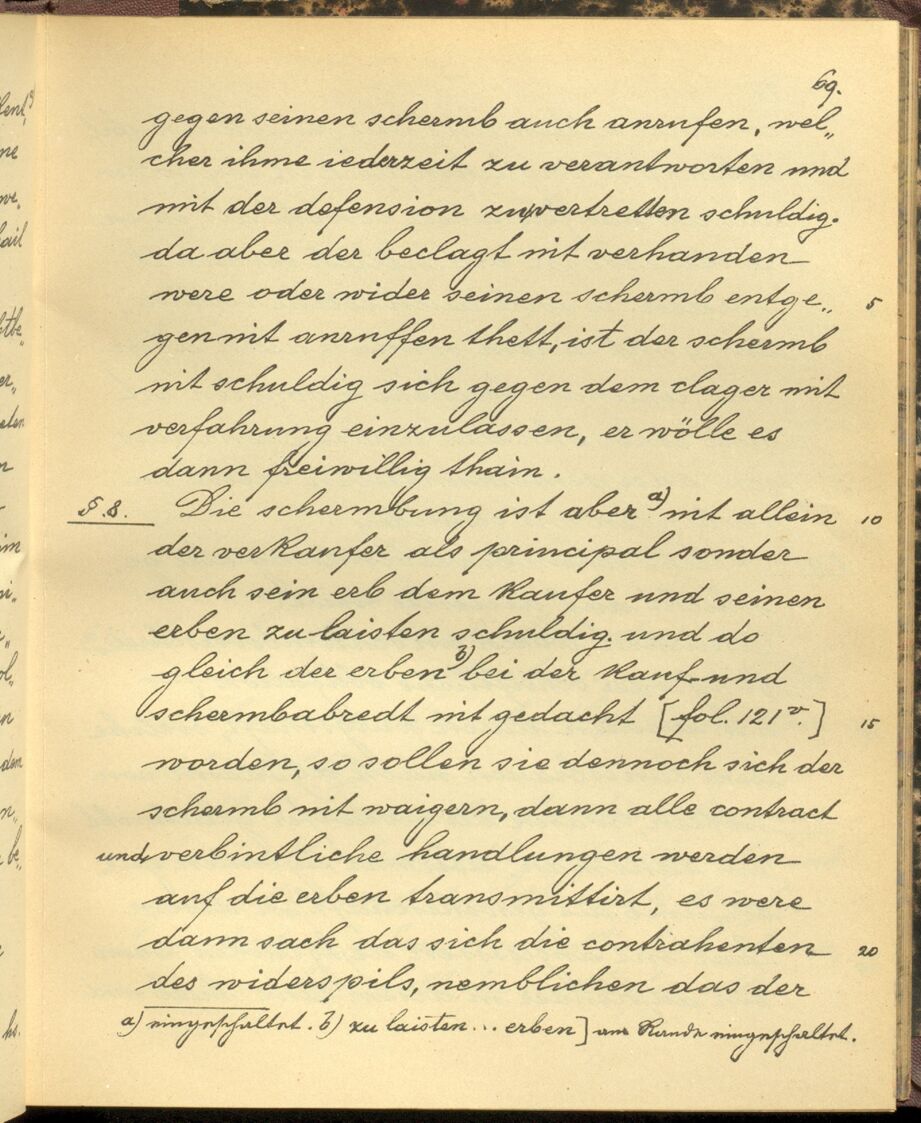 69.
gegen seinen schermb auch anrufen, wel„
cher ihme iederzeit zu verantworten und
mit der defension zuvertretten schuldig.
da aber der beclagt nit verhanden
were oder wider seinen schermb entge„ 5
gen nit anruffen thett, ist der schermb
nit schuldig sich gegen dem clager mit
verfahrung einzulassen, er wölle es
dann freiwillig thain.
§.8. Die schermbung ist aber a) nit allein 10
der verkaufer als principal sonder
auch sein erb dem kaufer und seinen
erben zu laisten schuldig. und do
gleich der erben b) bei der kauf- und
schermbabredt nit gedacht [fol. 121v.] 15
worden, so sollen sie dennoch sich der
schermb nit waigern, dann alle contract
und verbintliche handlungen werden
auf die erben transmittirt, es were
dann sach das sich die contrahenten 20
des widerspils, nemblichen das der
a) eingeschaltet. b) zu laisten... erben] am Rande eingeschaltet.